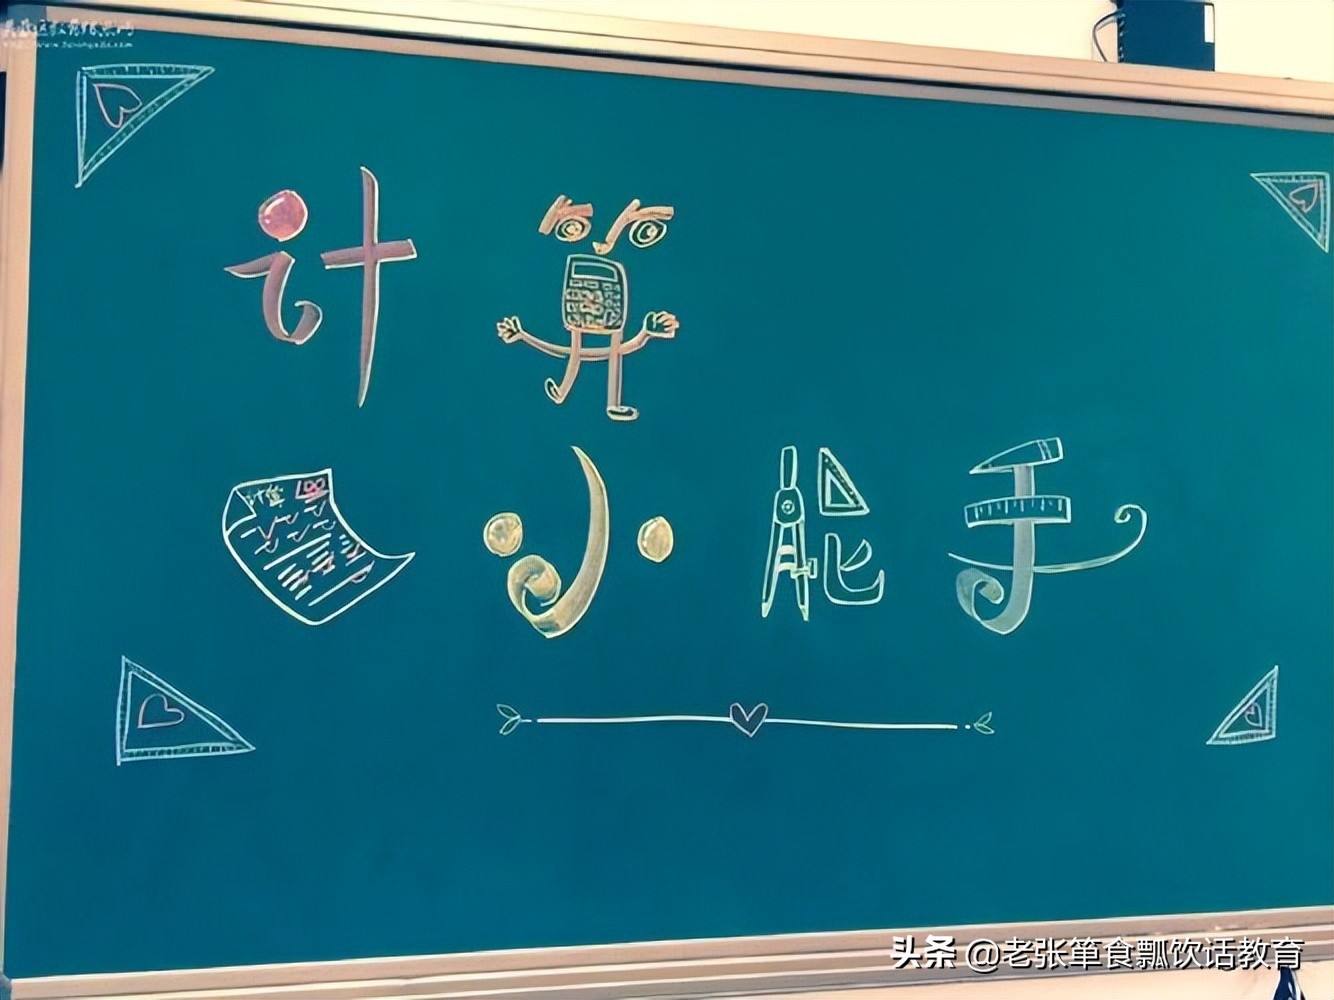 计算
计算 100
小能手
头条 @老张箪食瓢饮话教育